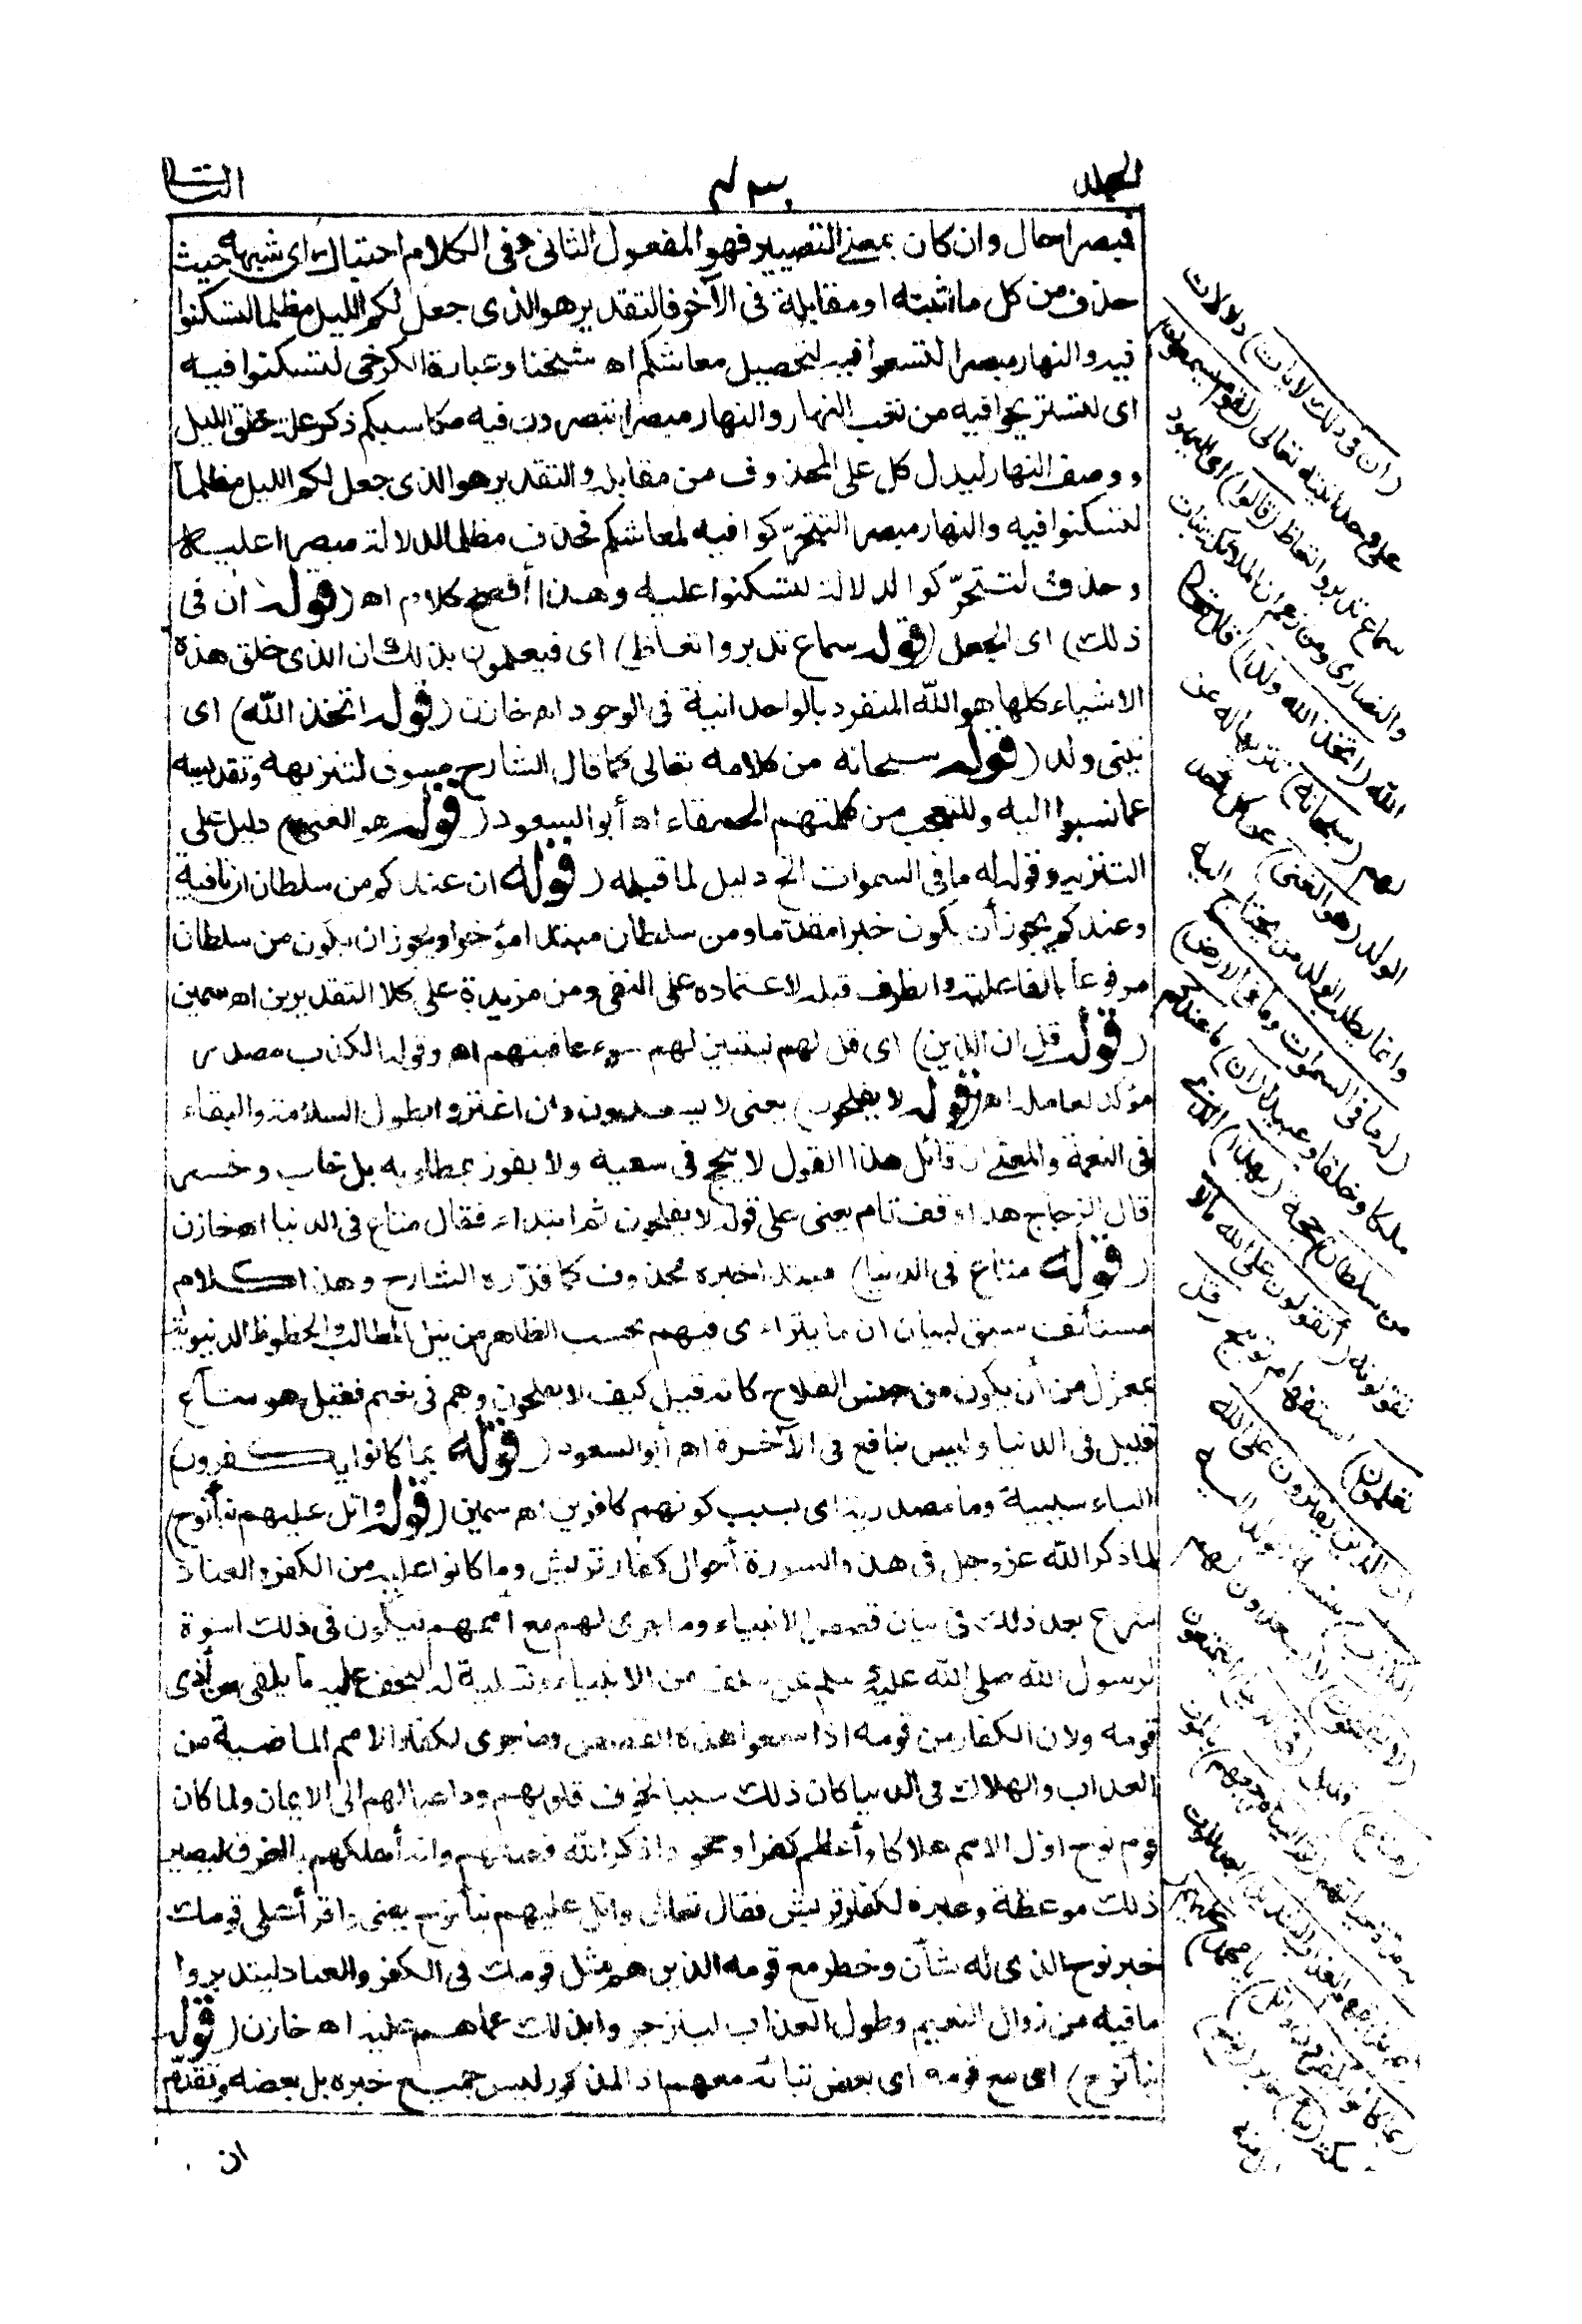 الجلد
الثانى
فمبصرا حال وان كان بمعنى التصيير فهو المفعول الثانى وفى الكلام احتباك اى شبهه حيث
حذف من كل ما اثبته او مقابله فى الآخر فالتقدير هو الذى جعل لكم الليل مظلما لتسكنوا
فيه والنهار مبصرا لتسعوا فيه لتحصيل معاشكم اه شيخنا وعبارة الكرخى لتسكنوا فيه
اى لتستريحوا فيه من تعب النهار والنهار مبصرا تبصرون فيه مكاسبكم ذكر علة خلق الليل
ووصف النهار ليدل كل على المحذوف من مقابله والتقدير هو الذى جعل لكم الليل مظلما
لتسكنوا فيه والنهار مبصرا لتتحرّكوا فيه لمعاشكم فحذف مظلما لدلالة مبصرا عليه
وحذف لتتحرّكوا لدلالة لتسكنوا عليه وهذا أفصح كلام اه (قوله ان فى
ذلك) اى الجعل (قوله سماع تدبر واتعاظ) اى فيعلمون بذلك ان الذى خلق هذه
الاشياء كلها هو الله المنفرد بالواحدانية فى الوجود اه خازن (قوله اتخذ الله) اى
تبنى ولد (قوله سبحانه من كلامه تعالى كما قال الشارح مسوق لتنزيهه وتقديسه
عما نسبوا اليه وللتعجب من كلمتهم الحمقاء اه أبو السعود (قوله هو الغنى) دليل على
التنزيه وقوله له ما فى السموات الخ دليل لما قبله (قوله ان عندكم من سلطان ان نافية
وعندكم يجوز أن يكون خبرا مقدّما ومن سلطان مبتدا مؤخرا ويجوز ان يكون من سلطان
مرفوعا بالفاعلية والظرف قبله لاعتماده على النفى ومن مزيدة على كلا التقديرين اه سمين
(قوله قل ان الذين) اى قل لهم لتبين لهم سوء عاقبتهم اه وقوله الكذب مصدر
مؤكد لعامله اه (قوله لا يفلحون) يعنى لا يسعدون وان اغتروا بطول السلامة والبقاء
فى النعمة والمعنى ان قائل هذا القول لا ينجح فى سعيه ولا يفوز بمطلوبه بل خاب وخسر
قال الزجاج هذا وقف تام يعنى على قوله لا يفلحون ثم ابتداء فقال متاع فى الدنيا اه خازن
(قوله متاع فى الدنيا) مبتدا خبره محذوف كما قدّره الشارح وهذا كلام
مستأنف سيق لبيان ان ما يتراءى فيهم بحسب الظاهر من نيل المطالب والحظوظ الدنيوية
بمعزل من أن يكون من جنس الفلاح كانه قيل كيف لا يفلحون وهم فى نعيم فقيل هو متاع
قليل فى الدنيا وليس بنافع فى الآخرة اه أبو السعود (قوله بما كانوا يكفرون)
الباء سببية وما مصدرية اى بسبب كونهم كافرين اه سمين (قوله واتل عليهم نبأ نوح)
لما ذكر الله عز وجل فى هذه السورة أحوال كفار قريش وما كانوا عليه من الكفر والعناد
شرع بعد ذلك فى بيان قصص الانبياء وما جرى لهم مع أممهم ليكون فى ذلك اسوة
لرسول الله صلى الله عليه وسلم بمن سلف من الانبياء وتسلية له ليخف عليه ما يلقى من أذى
قومه ولان الكفار من قومه اذا سمعوا هذه القصص وما جرى لكفار الامم الماضية من
العذاب والهلاك فى الدنيا كان ذلك سببا لخوف قلوبهم وداعيا لهم الى الايمان ولما كان
قوم نوح اول الامم هلاكا وأعظم كفرا وجحودا ذكر الله قصتهم وانه أهلكهم بالغرق ليصير
ذلك موعظة وعبرة لكفار قريش فقال تعالى واتل عليهم نبأ نوح يعنى واقرأ على قومك
خبر نوح الذى له شأن وخطر مع قومه الذين هم مثل قومك فى الكفر والعناد ليتدبروا
ما فيه من زوال النعيم وطول العذاب لينزجروا بذلك عما هم عليه اه خازن (قوله
نبأ نوح) اى مع قومه اى بعض نبأه معهم اذ المذكور ليس جميع خبره بل بعضه وتقدّم
ان
(ان فى ذلك لآيات) دلالات
على وحدانيته تعالى (لقوم يسمعون)
سماع تدبر واتعاظ (قالوا) اى اليهود
والنصارى ومن زعم ان الملائكة بنات
الله (اتخذ الله ولدا) قال تعالى
لهم (سبحانه) تنزيها له عن
الولد (هو الغنى) عن كل احد
وانما يطلب الولد من يحتاج اليه
(له ما فى السموات وما فى الارض)
ملكا وخلقا وعبيدا (ان) ما عندكم
من سلطان حجة (بهذا) الذى
تقولونه (أتقولون على الله ما لا
تعلمون) استفهام توبيخ (قل
ان الذين يفترون على الله
الكذب) بنسبة الولد اليه
(لا يفلحون) لا يسعدون لهم
(متاع) قليل (فى الدنيا) يتمتعون